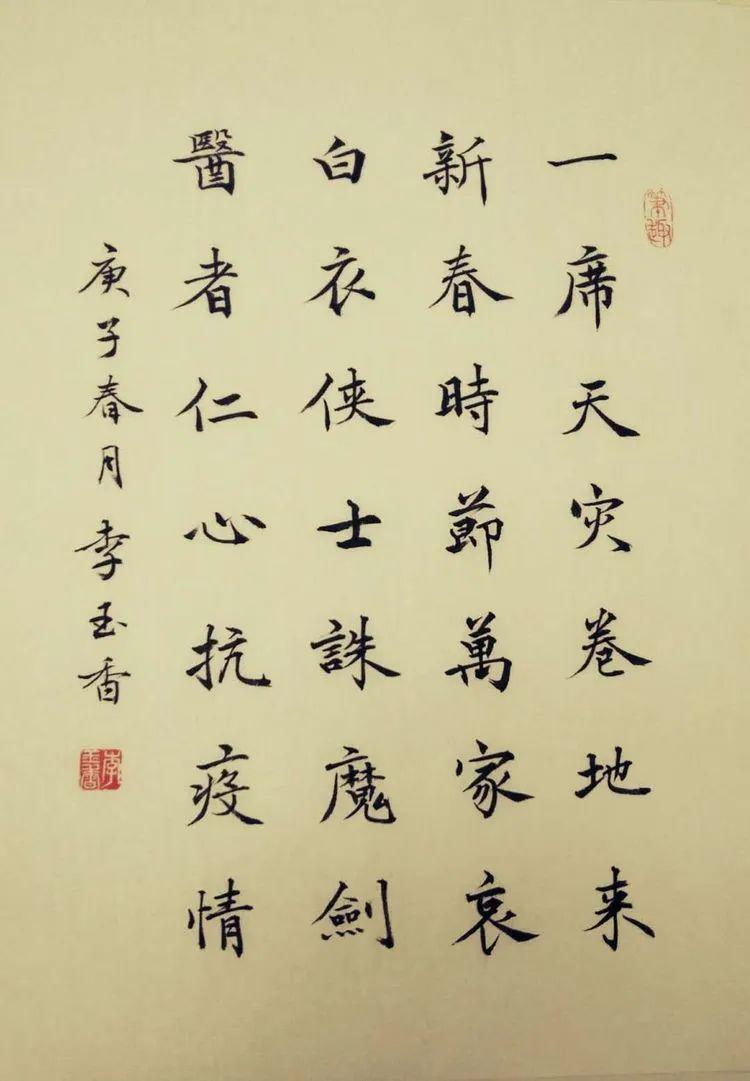 一席天灾卷地来
新春時節萬家哀
白衣侠士誅魔劍
醫者仁心抗疫情
庚子春月李玉香